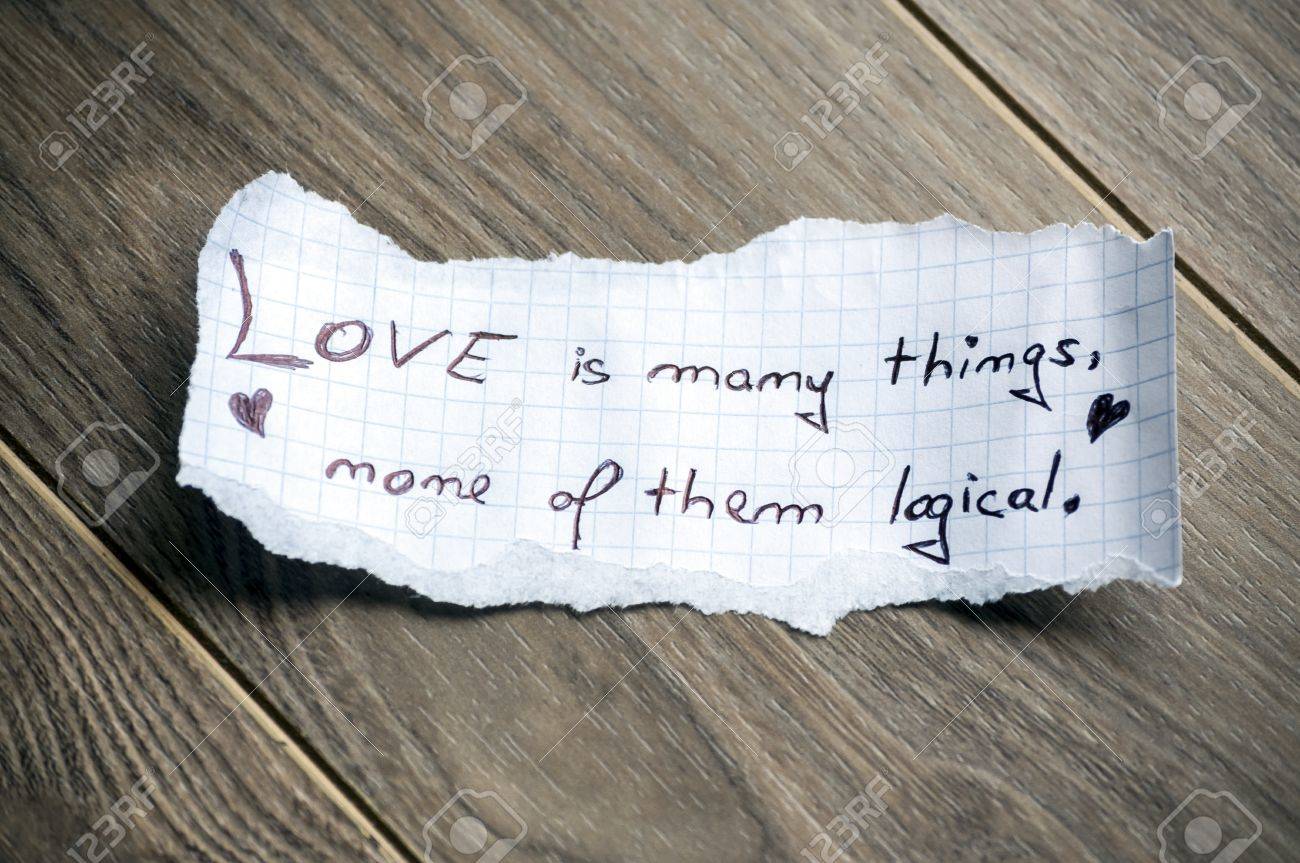 LOVE is many things,
none of them logical.
123RF
123RF
123RF
123RF
123RF
123RF
123RF